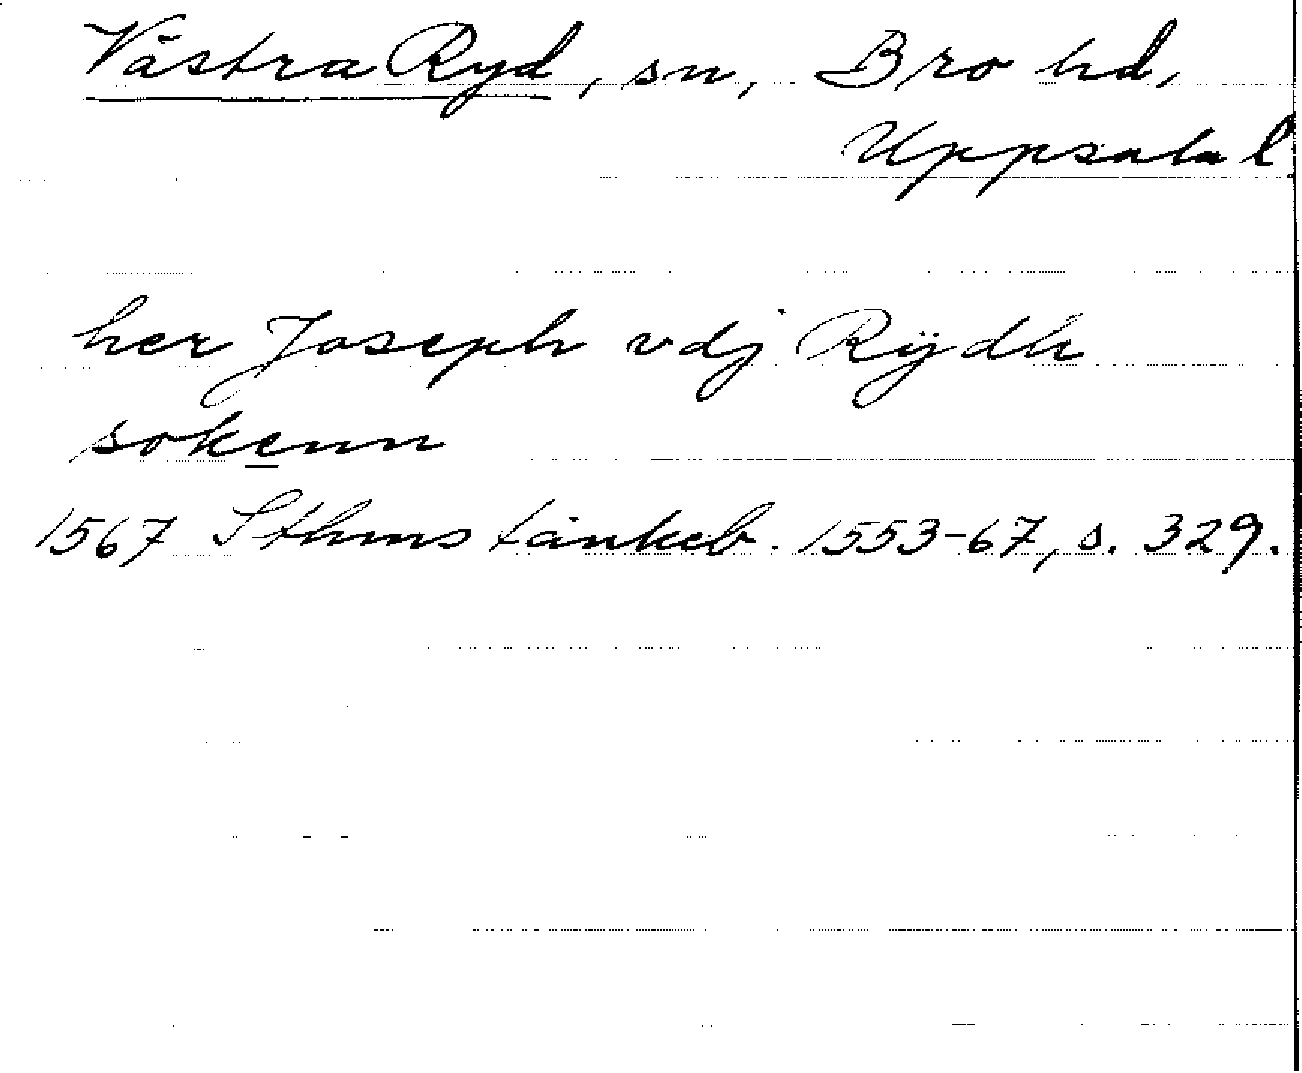 Västra Ryd, sn, Bro hd,
Uppsala l.
her Joseph vdj Rÿdh
sokenn
1567 Sthms tänkeb. 1553-67, s. 329.